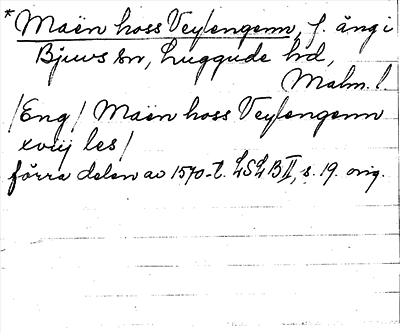 * Maën hoss Veyſengenn, f. äng i
Bjuvs sn, Luggude hd,
Malm. l.
/Eng/ Maën hoss Veyſengenn
xviij les/
förra delen av 1570-t. LSLB II, s. 19. orig.